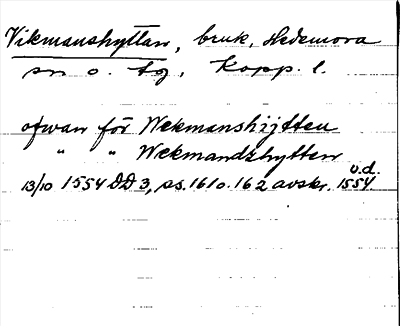 Vikmanshyttan, bruk, Hedemora
sn o. tg, Kopp. l.
ofwan för Wekmanshijtten
" " Wekmandzhytten
u.d.
13/10 1554 DD 3, ss. 161 o. 162 avskr. 1554.